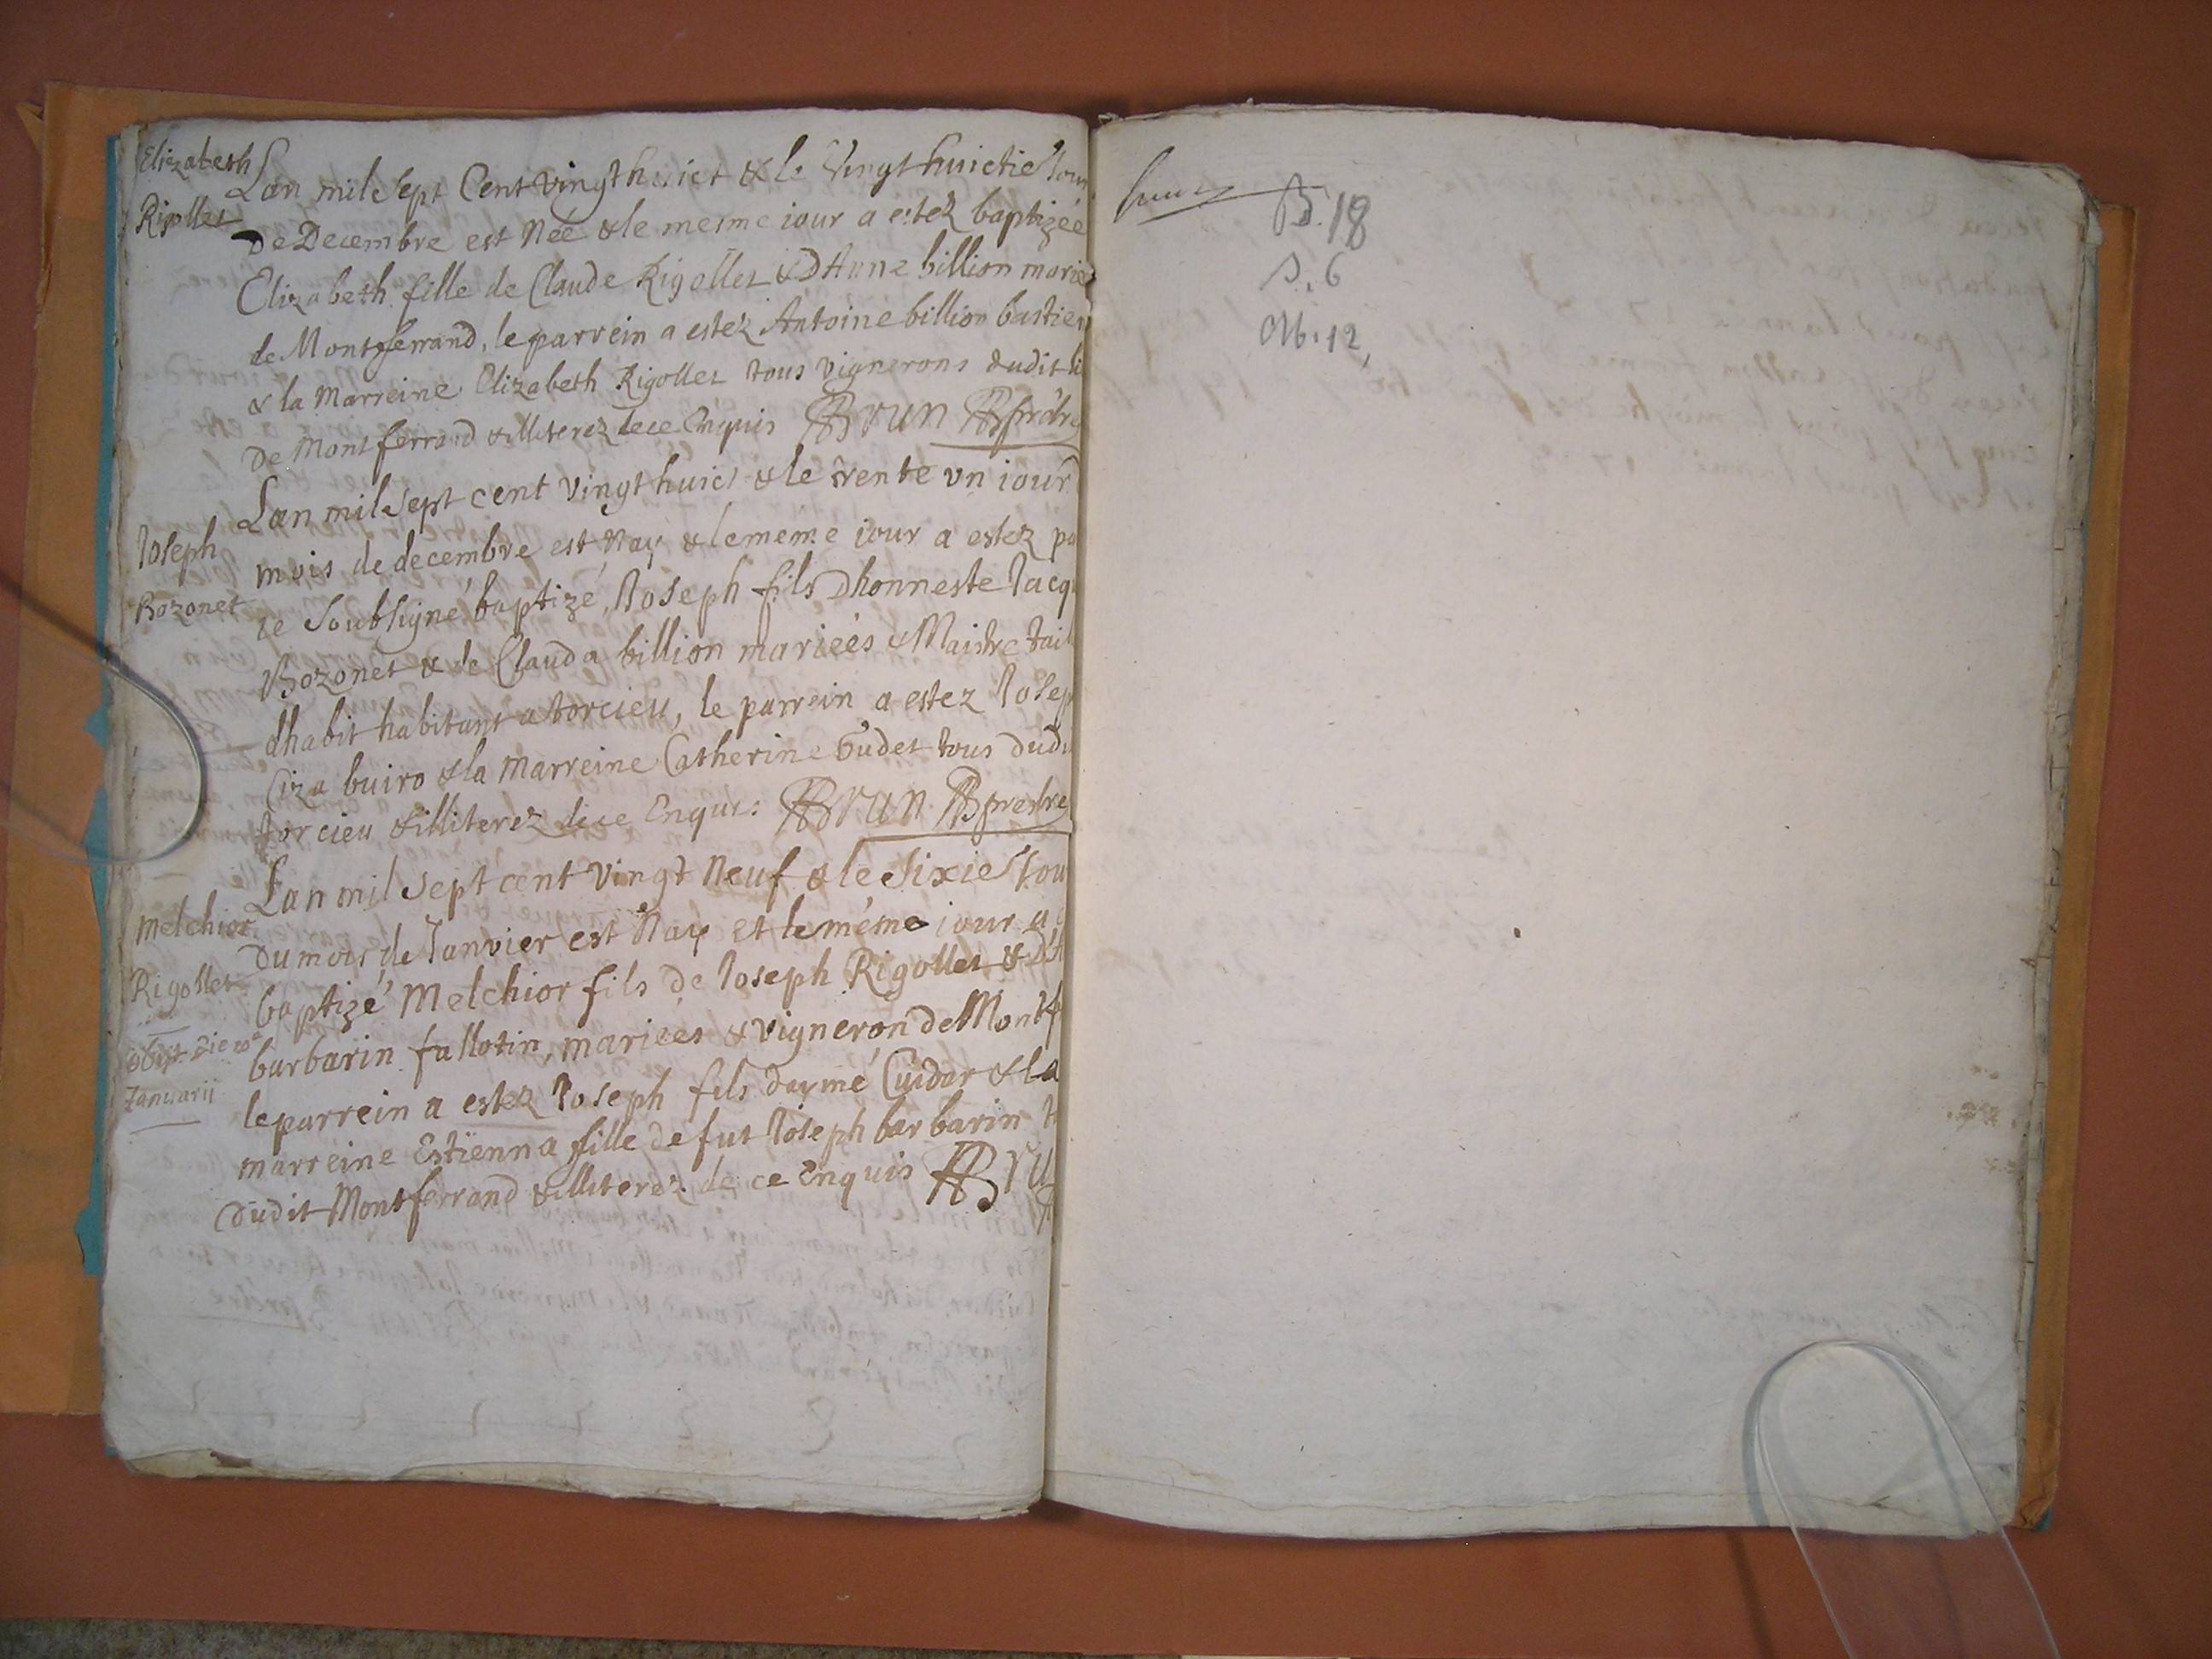 Elizabeth
Rigollet
Lan mil sept Cent vingt huict & le vingt huictie Jour
De Decembre est Née & le mesme iour a estez baptizée
Elizabeth fille de Claude Rigollet & D'Anne billion mariez
de Montferrand, le parrein a estez Antoine billion bastien
& la Marreine Elizabeth Rigollet tous vignerons dudit li
De Montferrand & illiterez de ce Enquis Brun prebre
Joseph
Bozonet
Lan mil sept cent vingt huict & le trente un iour
mois de decembre est Nay & le meme iour a estez pa
le Soubsigné baptizé, Joseph fils Dhonneste Jacq
Bozonet & de Clauda billion mariées & Maistre tail
dhabit habitant a torcieu, le parrein a estez Josep
Ciza buiro & la Marreine Catherine Gudet tous dudi
torcieu & illiterez de ce Enquis: Brun prestre
Melchior
Rigollet
obiit Die 10a
Januarii
Lan mil sept cent vingt Neuf & le Sixie Jou
Du mois de Janvier est Nay et le méme iour a
baptizé Melchior fils de Joseph Rigollet &
barbarin fallotin, mariees & vigneron de Montf
le parrein a estez Joseph fils daymé Cuidar & la
marreine Estienna fille de fut Joseph barbarin
Dudit Montferrand & illiterez de ce Enquis Bru
B. 18
S. 6
M. 12,